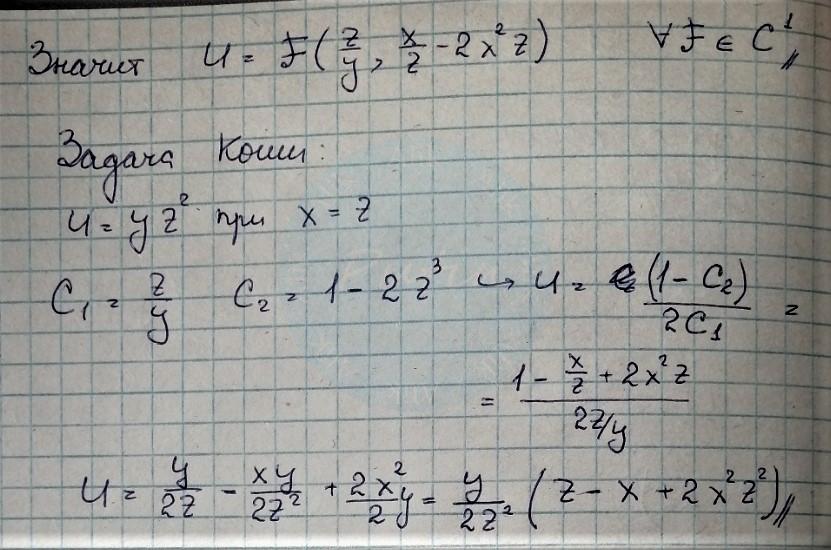 Значит U = F(z/y, x/z - 2x²z) ∀ F ∈ C¹//
Задача Коши:
U = y z² при x = z
C₁ = z/y C₂ = 1 - 2z³ ↪ U = (1 - C₂)/2C₁ =
= (1 - x/z + 2x²z)/(2z/y)
U = y/2z - xy/2z² + 2x²/2 y = y/2z² (z - x + 2x²z²)//